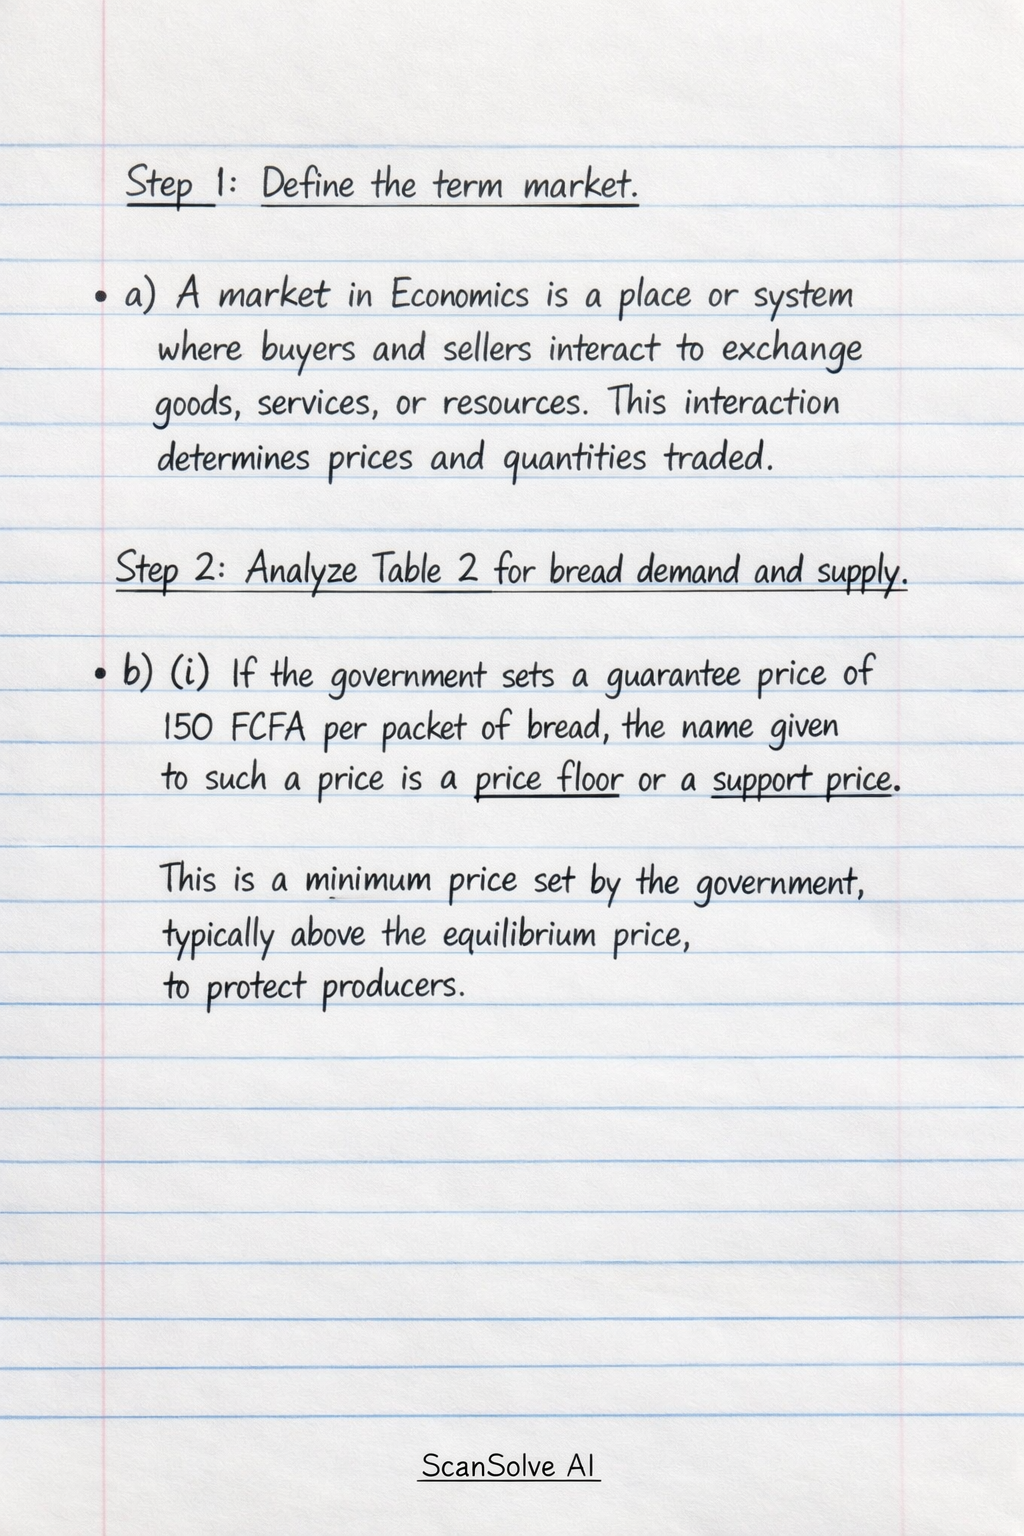 Step 1: Define the term market.
• a) A market in Economics is a place or system
where buyers and sellers interact to exchange
goods, services, or resources. This interaction
determines prices and quantities traded.
Step 2: Analyze Table 2 for bread demand and supply.
• b) (i) If the government sets a guarantee price of
150 FCFA per packet of bread, the name given
to such a price is a price floor or a support price.
This is a minimum price set by the government,
typically above the equilibrium price,
to protect producers.
ScanSolve AI